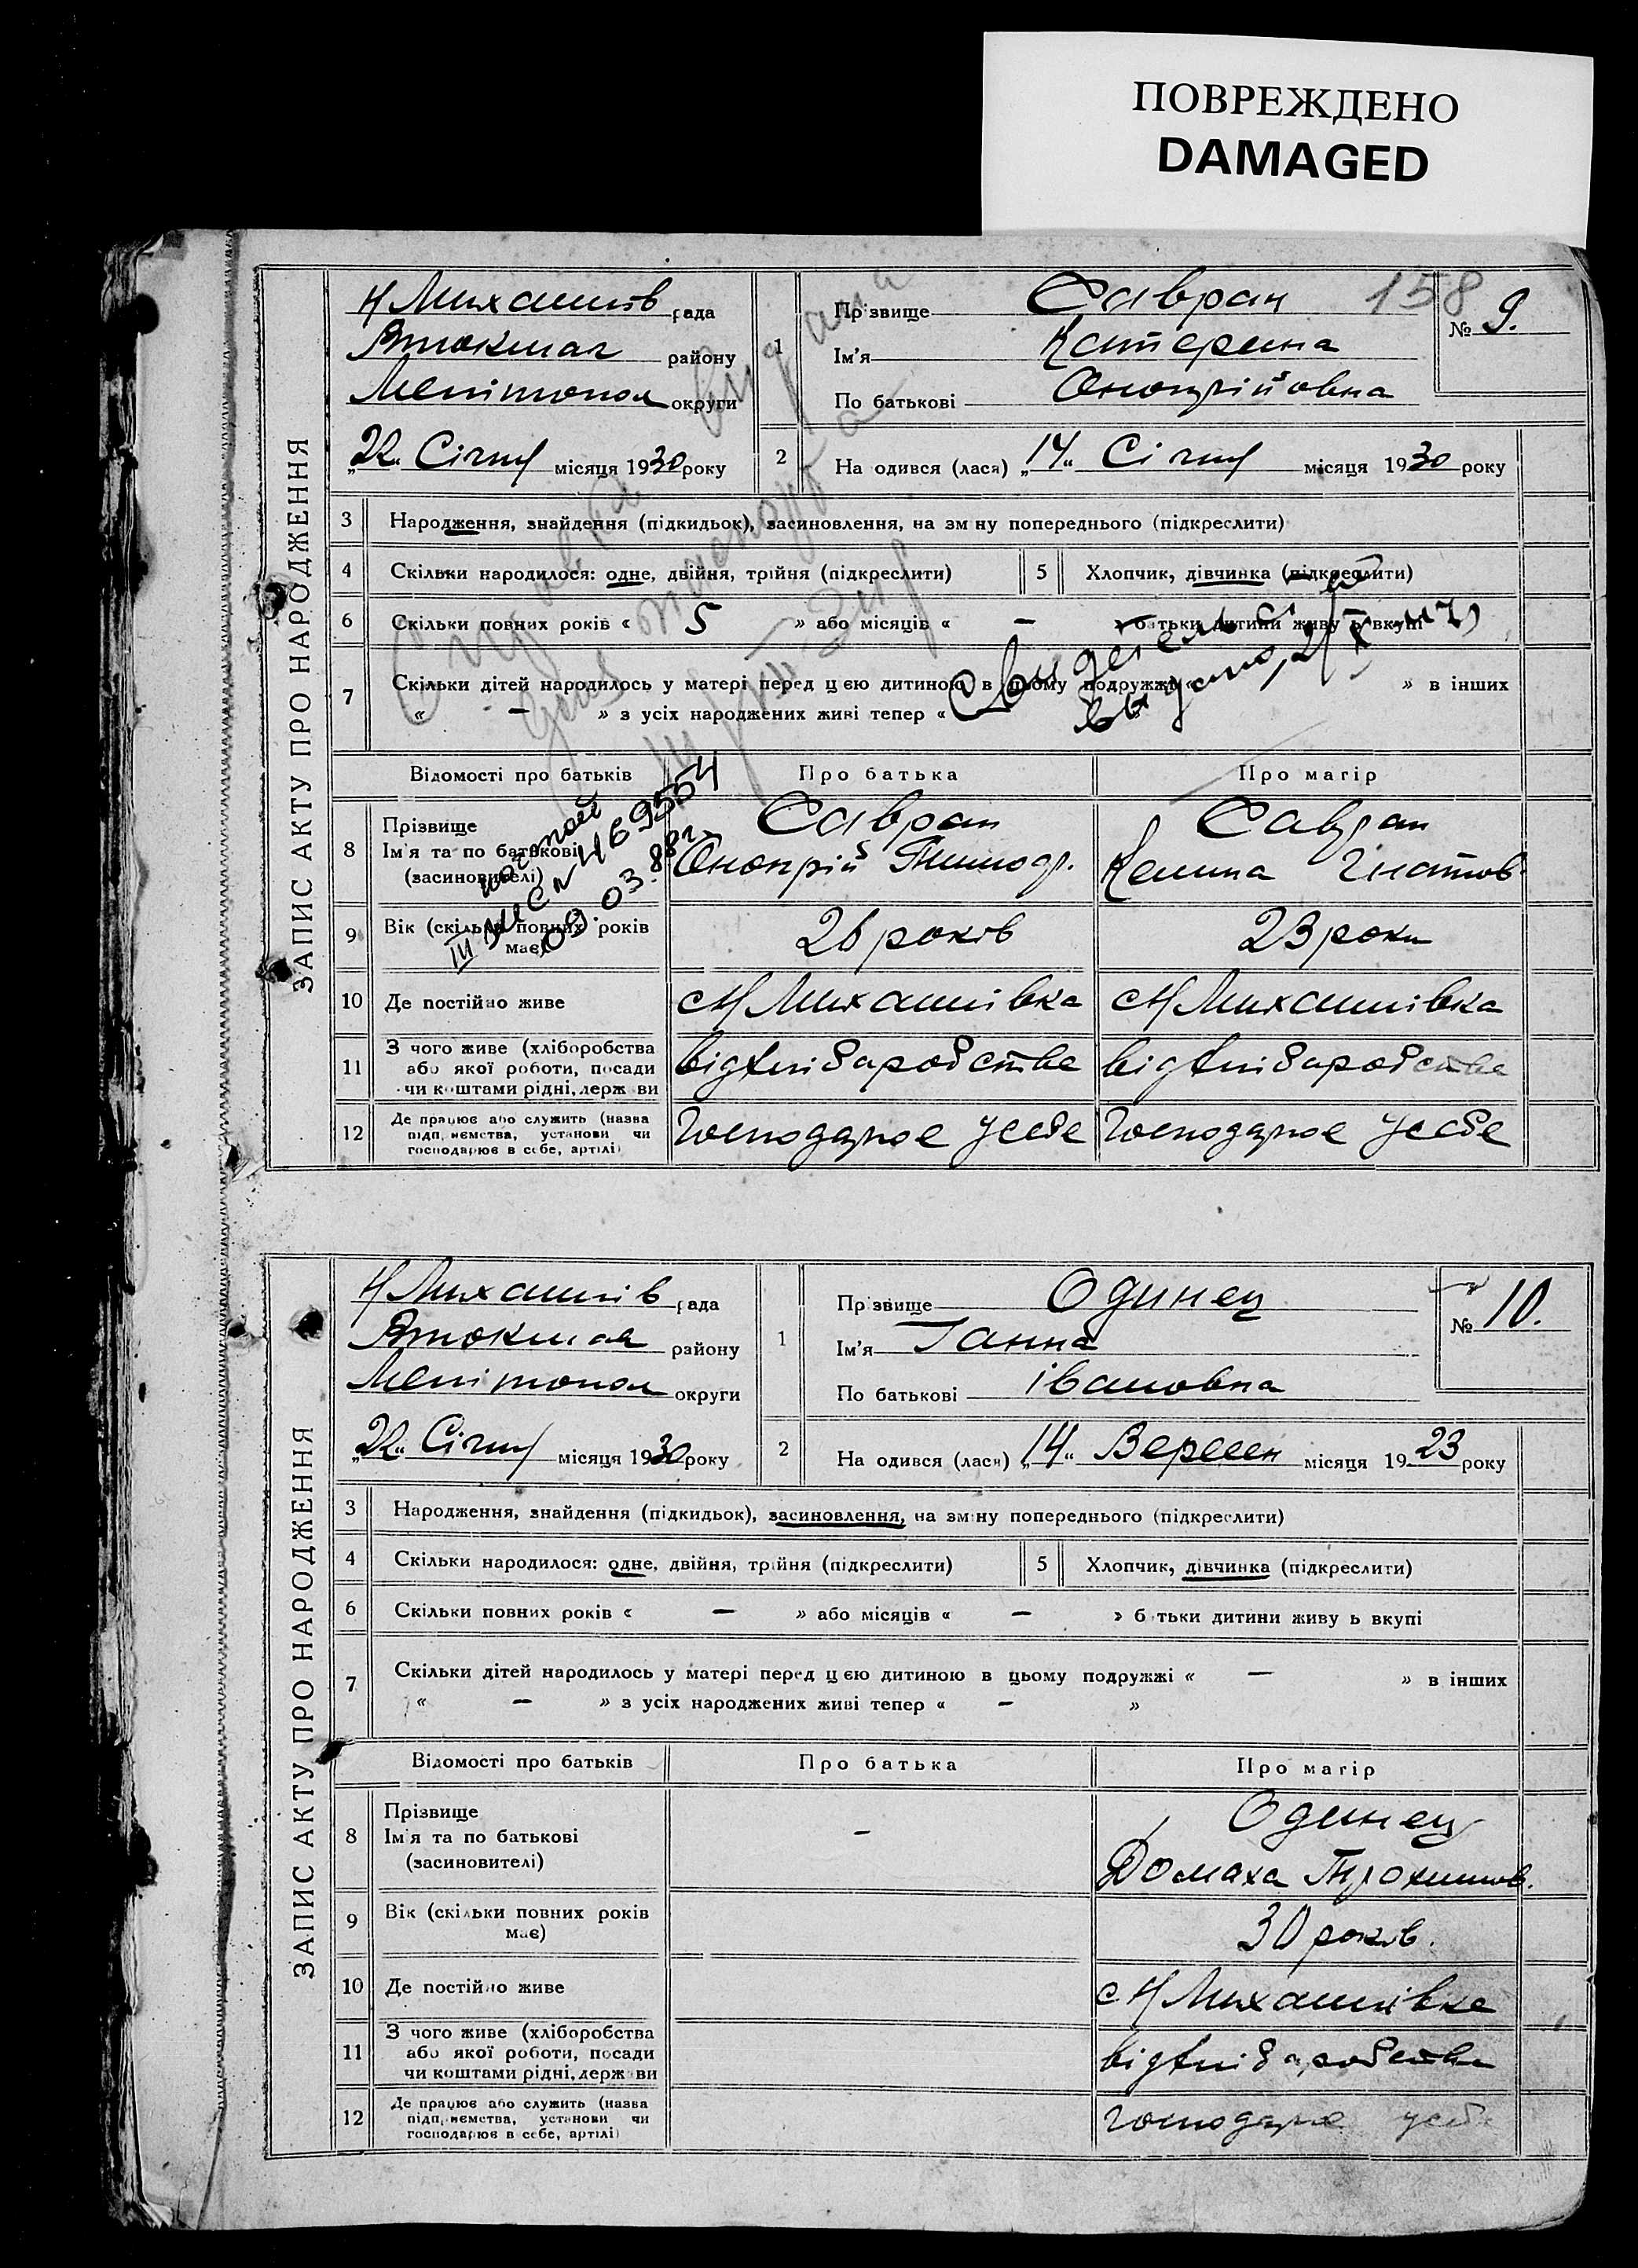 ПОВРЕЖДЕНО
DAMAGED
158
ЗАПИС АКТУ ПРО НАРОДЖЕННЯ
Н Михайлів рада
Втокмак району
Мелітопол округи
„22“ Січня місяця 1930 року
1
Прізвище Савран
Ім'я Катерина
По батькові Онопрійовна
№ 9.
2 На одився (лася) „14“ Січня місяця 1930 року
3 Народження, знайдення (підкидьок), засиновлення, на зм ну попереднього (підкреслити)
4 Скільки народилося: одне, двійня, трійня (підкреслити)
5 Хлопчик, дівчинка (підкреслити)
6 Скільки повних років « 5 » або місяців « — » батьки дитини живу ь вкупі
7 Скільки дітей народилось у матері перед ц єю дитиною в цьому подружжі « » в інших
« — » з усіх народжених живі тепер «
Свидетельство
выдано
повторной
III ЖС № 469554
09.03.88г.
Відомості про батьків Про батька Про матір
8 Прізвище
Ім'я та по батькові
(засиновителі)
Савран
Онопрій Тимоф.
Савран
Келина Гнатов.
9 Вік (скільки повних років
має)
26 років
23 роки
10 Де постійно живе
с Н Михайлівка
с Н Михайлівка
11 З чого живе (хліборобства
або якої роботи, посади
чи коштами рідні, держ ви
від хліборобства
від хліборобства
12 Де працює або служить (назва
підп, иємства, установи чи
господарює в себе, артілі)
Господарює у себе
Господарює у себе
ЗАПИС АКТУ ПРО НАРОДЖЕННЯ
Н Михайлів рада
Втокмак району
Мелітопол округи
„22“ Січня місяця 1930 року
1
Пр звище Одинец
Ім'я Ганна
По батькові Івановна
№ 10.
2 На одився (лася) „14“ Вересен місяця 1923 року
3 Народження, знайдення (підкидьок), засиновлення, на зм ну попереднього (підкреслити)
4 Скільки народилося: одне, двійня, трійня (підкреслити)
5 Хлопчик, дівчинка (підкреслити)
6 Скільки повних років « — » або місяців « — » б тьки дитини живу ь вкупі
7 Скільки дітей народилось у матері перед ц єю дитиною в цьому подружжі « — » в інших
« — » з усіх народжених живі тепер « — »
Відомості про батьків Про батька Про матір
8 Прізвище
Ім'я та по батькові
(засиновителі)
—
Одинец
Домаха Трохимов.
9 Вік (скільки повних років
має)
30 років.
10 Де постійно живе
с Н Михайлівка
11 З чого живе (хліборобства
або якої роботи, посади
чи коштами рідні, держ ви
від хліборобства
12 Де працює або служить (назва
підп, иємства, установи чи
господарює в себе, артілі)
Господарює у себе